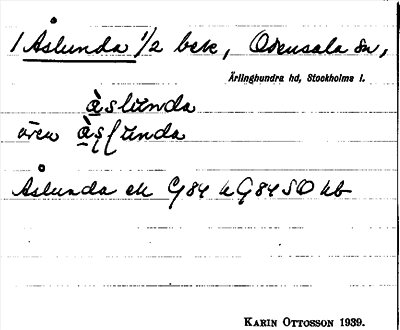 1 Åslunda 1/2 bek, Odensala sn,
Ärlinghundra hd, Stockholms l.
àslunda
även
Åslunda ek G84 h G84 SO kb
KARIN OTTOSSON 1939.